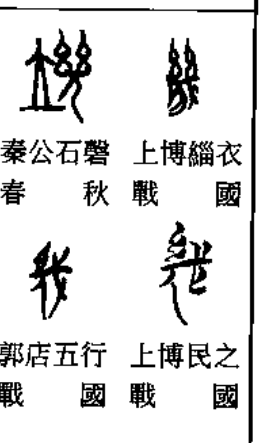 秦公石磬 上博緇衣
春秋 戰國
郭店五行 上博民之
戰國 戰國